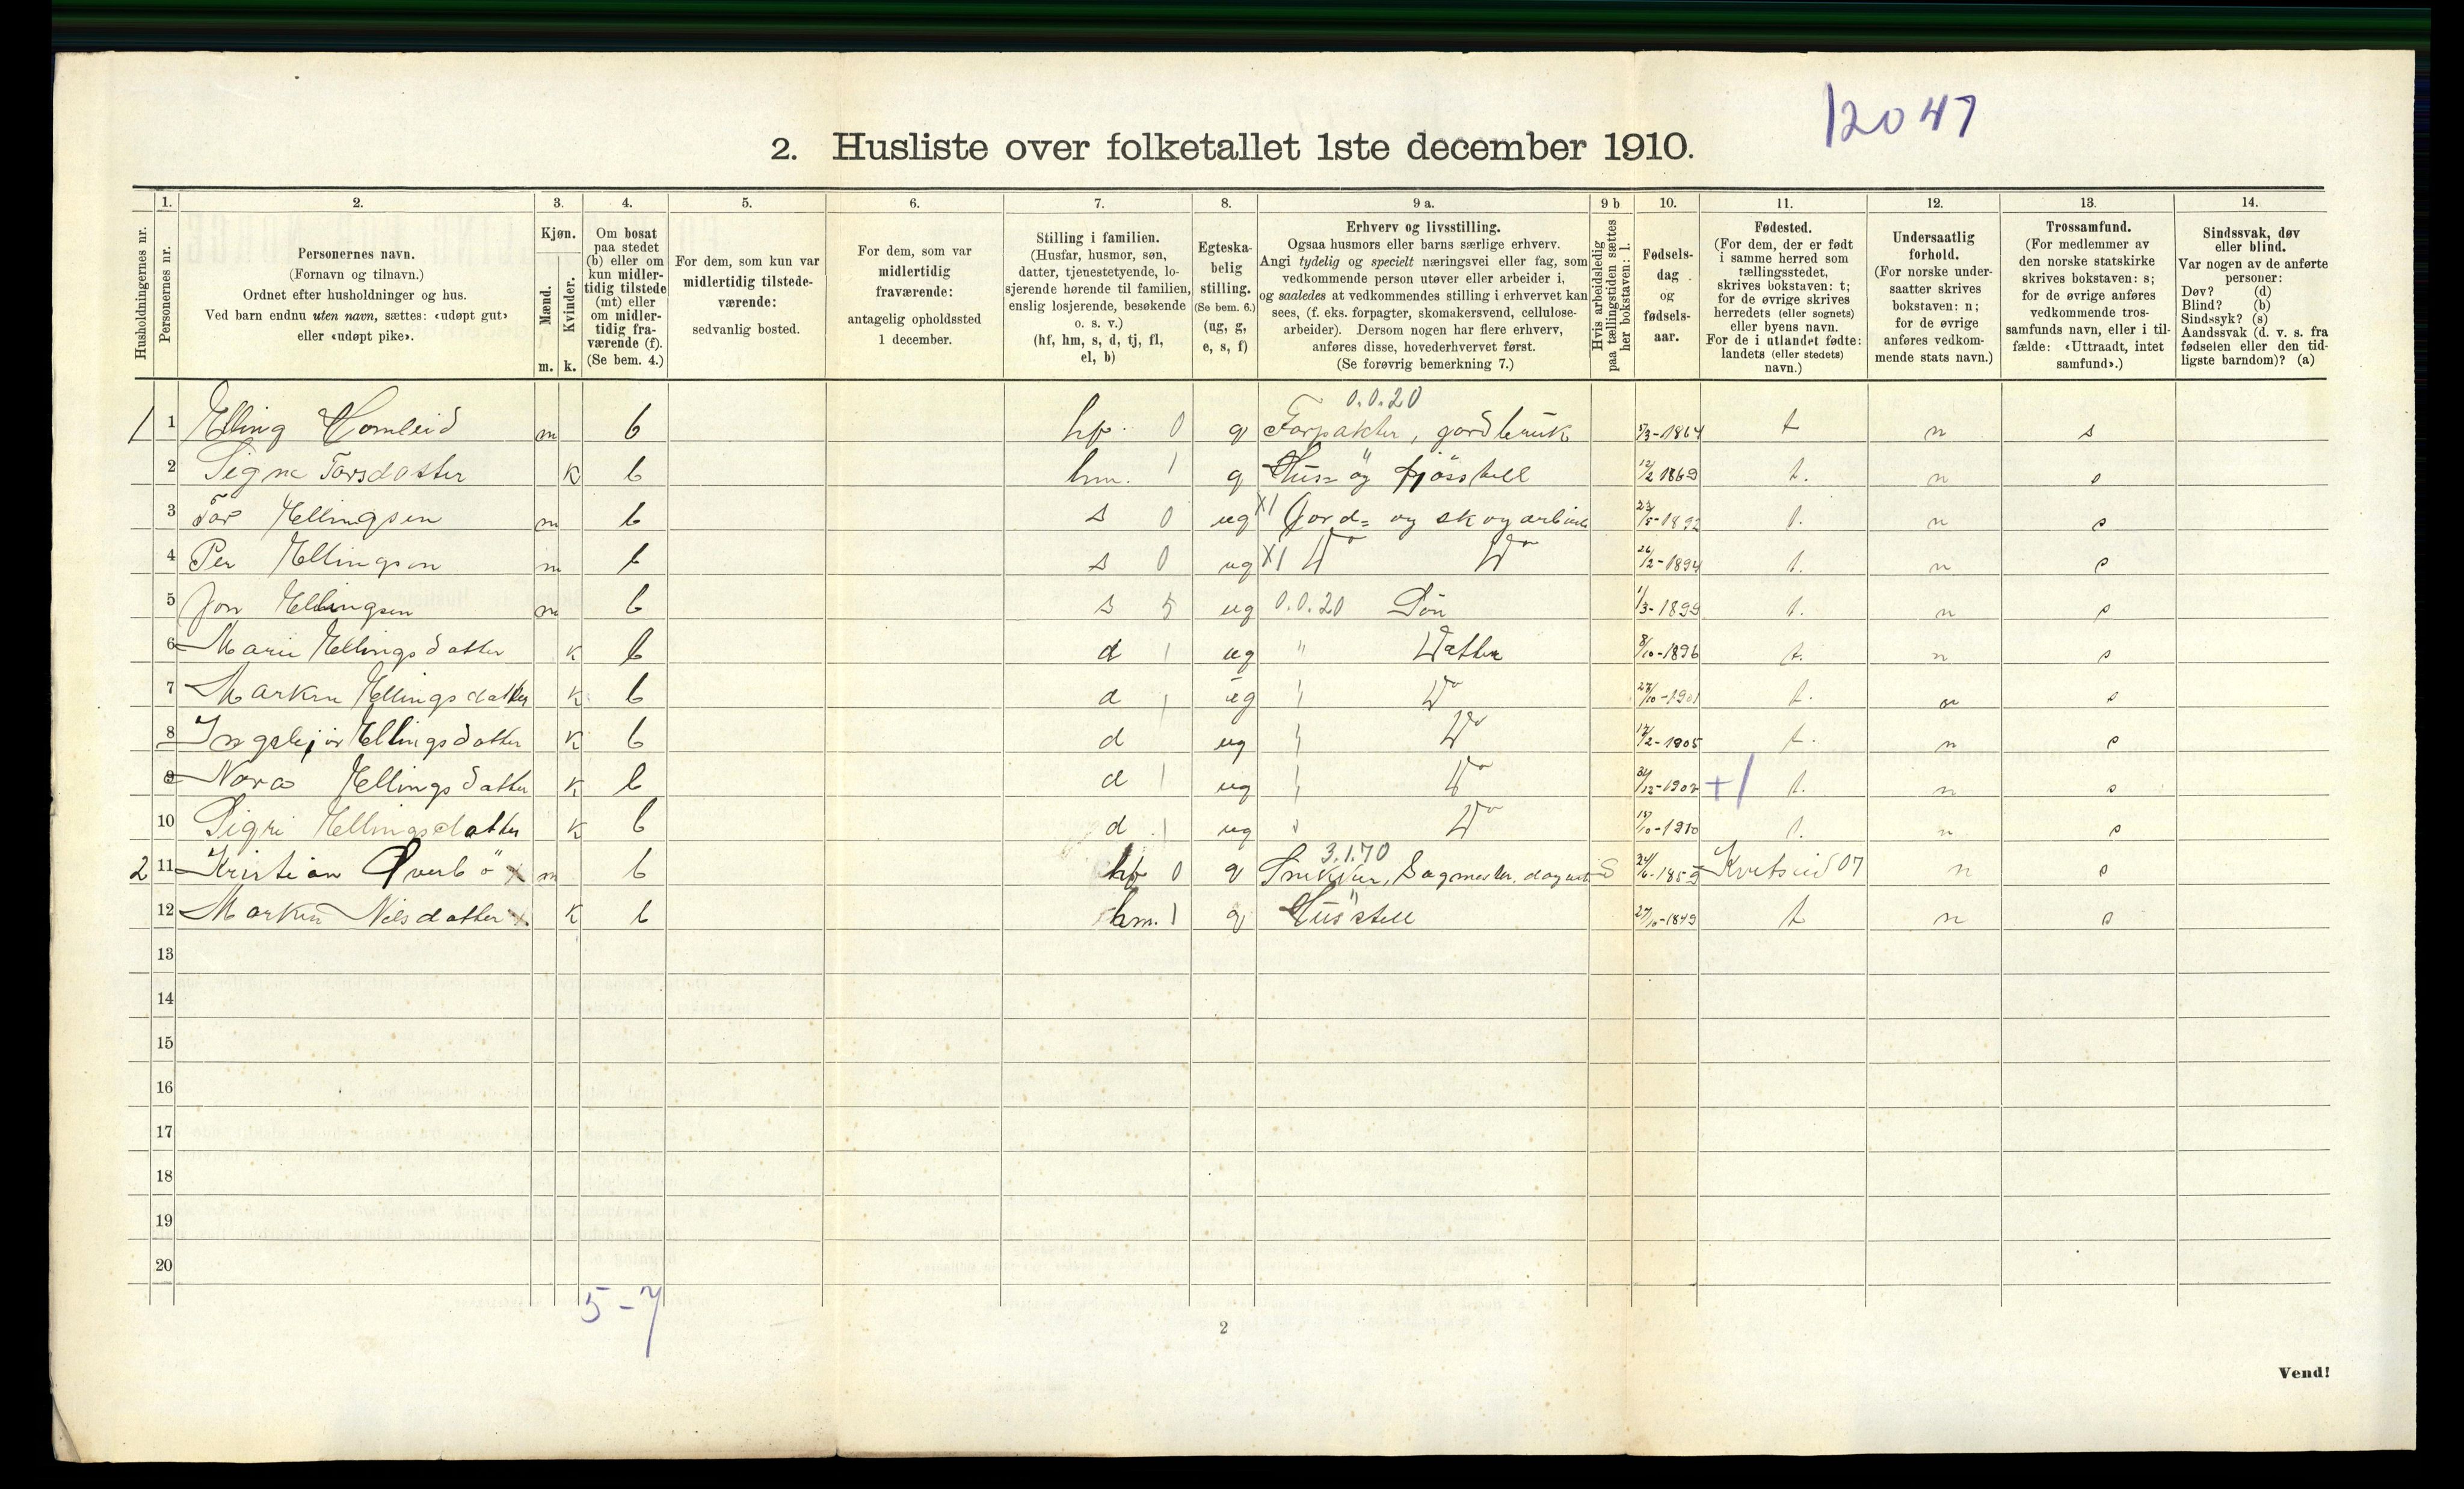 12047
2. Husliste over folketallet 1ste december 1910.
Husholdningernes nr.
1.
Personernes nr.
2.
Personernes navn.
(Fornavn og tilnavn.)
Ordnet efter husholdninger og hus.
Ved barn endnu uten navn, sættes: «udøpt gut»
eller «udøpt pike».
3.
Kjøn.
Mænd.
Kvinder.
m. k.
4.
Om bosat
paa stedet
(b) eller om
kun midler-
tidig tilstede
(mt) eller
om midler-
tidig fra-
værende (f).
(Se bem. 4.)
5.
For dem, som kun var
midlertidig tilstede-
værende:
sedvanlig bosted.
6.
For dem, som var
midlertidig
fraværende:
antagelig opholdssted
1 december.
7.
Stilling i familien.
(Husfar, husmor, søn,
datter, tjenestetyende, lo-
sjerende hørende til familien,
enslig losjerende, besøkende
o. s. v.)
(hf, hm, s, d, tj, fl,
el, b)
8.
Egteska-
belig
stilling.
(Se bem. 6.)
(ug, g,
e, s, f)
9 a.
Erhverv og livsstilling.
Ogsaa husmors eller barns særlige erhverv.
Angi tydelig og specielt næringsvei eller fag, som
vedkommende person utøver eller arbeider i,
og saaledes at vedkommendes stilling i erhvervet kan
sees, (f. eks. forpagter, skomakersvend, cellulose-
arbeider). Dersom nogen har flere erhverv,
anføres disse, hovederhvervet først.
(Se forøvrig bemerkning 7.)
9 b
Hvis arbeidsledig
paa tællingstiden sættes
her bokstaven: l.
10.
Fødsels-
dag
og
fødsels-
aar.
11.
Fødested.
(For dem, der er født
i samme herred som
tællingsstedet,
skrives bokstaven: t;
for de øvrige skrives
herredets (eller sognets)
eller byens navn.
For de i utlandet fødte:
landets (eller stedets)
navn.)
12.
Undersaatlig
forhold.
(For norske under-
saatter skrives
bokstaven: n;
for de øvrige
anføres vedkom-
mende stats navn.)
13.
Trossamfund.
(For medlemmer av
den norske statskirke
skrives bokstaven: s;
for de øvrige anføres
vedkommende tros-
samfunds navn, eller i til-
fælde: «Uttraadt, intet
samfund».)
14.
Sindssvak, døv
eller blind.
Var nogen av de anførte
personer:
Døv? (d)
Blind? (b)
Sindssyk? (s)
Aandssvak (d. v. s. fra
fødselen eller den tid-
ligste barndom)? (a)
0.0.20
1 1 Elling Homleid m b hf. 0 g Forpakter, gardbruk 5/3-1864 t n s
2 Signe Torsdatter k b hm. 1 g Hus= og fjösstell 12/2 1869 t. n s
3 Tor Ellingsen m b s 0 ug X1 Jord= og skogarbeid 1892 t. n s
4 Per Ellingsen m b s 0 ug X1 Do Do 26/2-1894 t. n s
5 Jon Ellingsen m b s 5 ug 0.0.20 Sön 1/3-1899 t. n s
6 Marie Ellingsdatter k b d 1 ug " Datter 8/10-1896 t. n s
7 Marken Ellingsdatter k b d 1 ug " Do 27/10-1901 t. n s
8 Ingebjör Ellingsdatter k b d ug " Do 17/2-1905 t. n s
9 Nora Ellingsdatter k b d 1 ug " Do +1 t. n s
10 Sigri Ellingsdatter k b d 1 ug " Do 1910 t. n s
3.1.70
2 11 Kristian Överbö x m b hf 0 g Snikker, Sagmester, S 24/6-1859 Kvitseid 07 n s
12 Marken Nilsdatter x. k b hm. 1 g Husstell 27/10-1849 t n s
13
14
15
16
17
18
19
20
5-7
2
Vend!